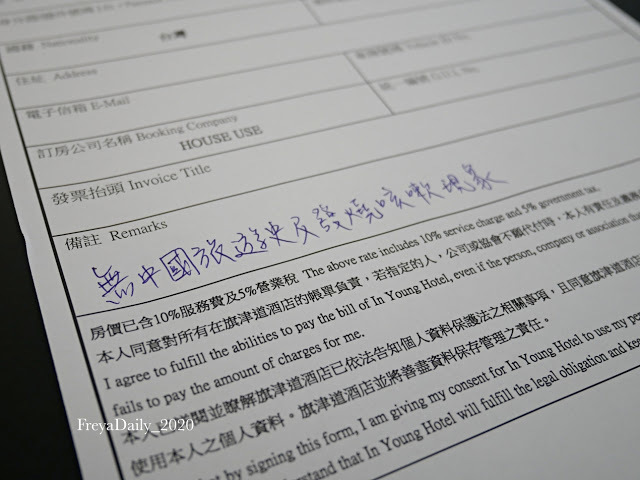 國籍 Nationality 台灣
住址 Address
電子信箱 E-Mail
訂房公司名稱 Booking Company
HOUSE USE
發票抬頭 Invoice Title
備註 Remarks
無中國旅遊史及發燒咳嗽現象
房價已含10%服務費及5%營業稅 The above rate includes 10% service charge and 5% government tax.
本人同意對所有在旗津道酒店的帳單負責，若指定的人，公司或協會不願代付時，本人有責任
I agree to fulfill the abilities to pay the bill of In Young Hotel, even if the person, company or association
fails to pay the amount of charges for me.
本人已詳閱並瞭解旗津道酒店已依法告知個人資料保護法之相關事項，且同意旗津道酒店
使用本人之個人資料。旗津道酒店並將善盡資料保存管理之責任。
by signing this form, I am giving my consent for In Young Hotel to use my
understand that In Young Hotel will fulfill the legal obligation and
FreyaDaily_2020